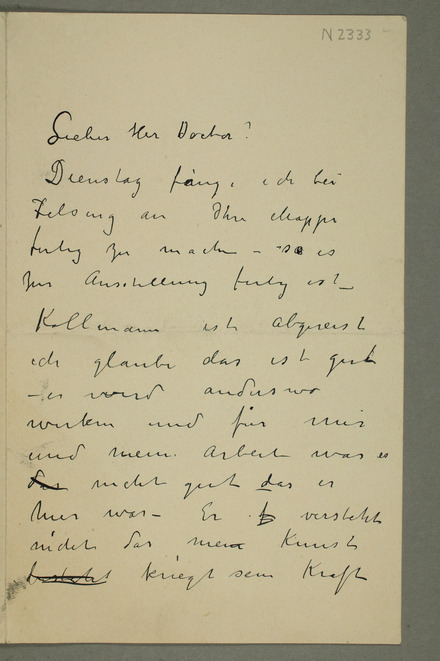 N 2333
Lieber Her Doctor!
Dienstag fang, ich bei
Felsing an Ihre Mappe
fertig zu machen – so es
zur Ausstellung fertig ist –
Kollmann ist abgereist
ich glaube das ist gut
– er wird anderswo
wirken und für mir
und mein Arbeit war es
das nicht gut das er
hier war – Er versteht
nicht das mein Kunst
kriegt sein Kraft